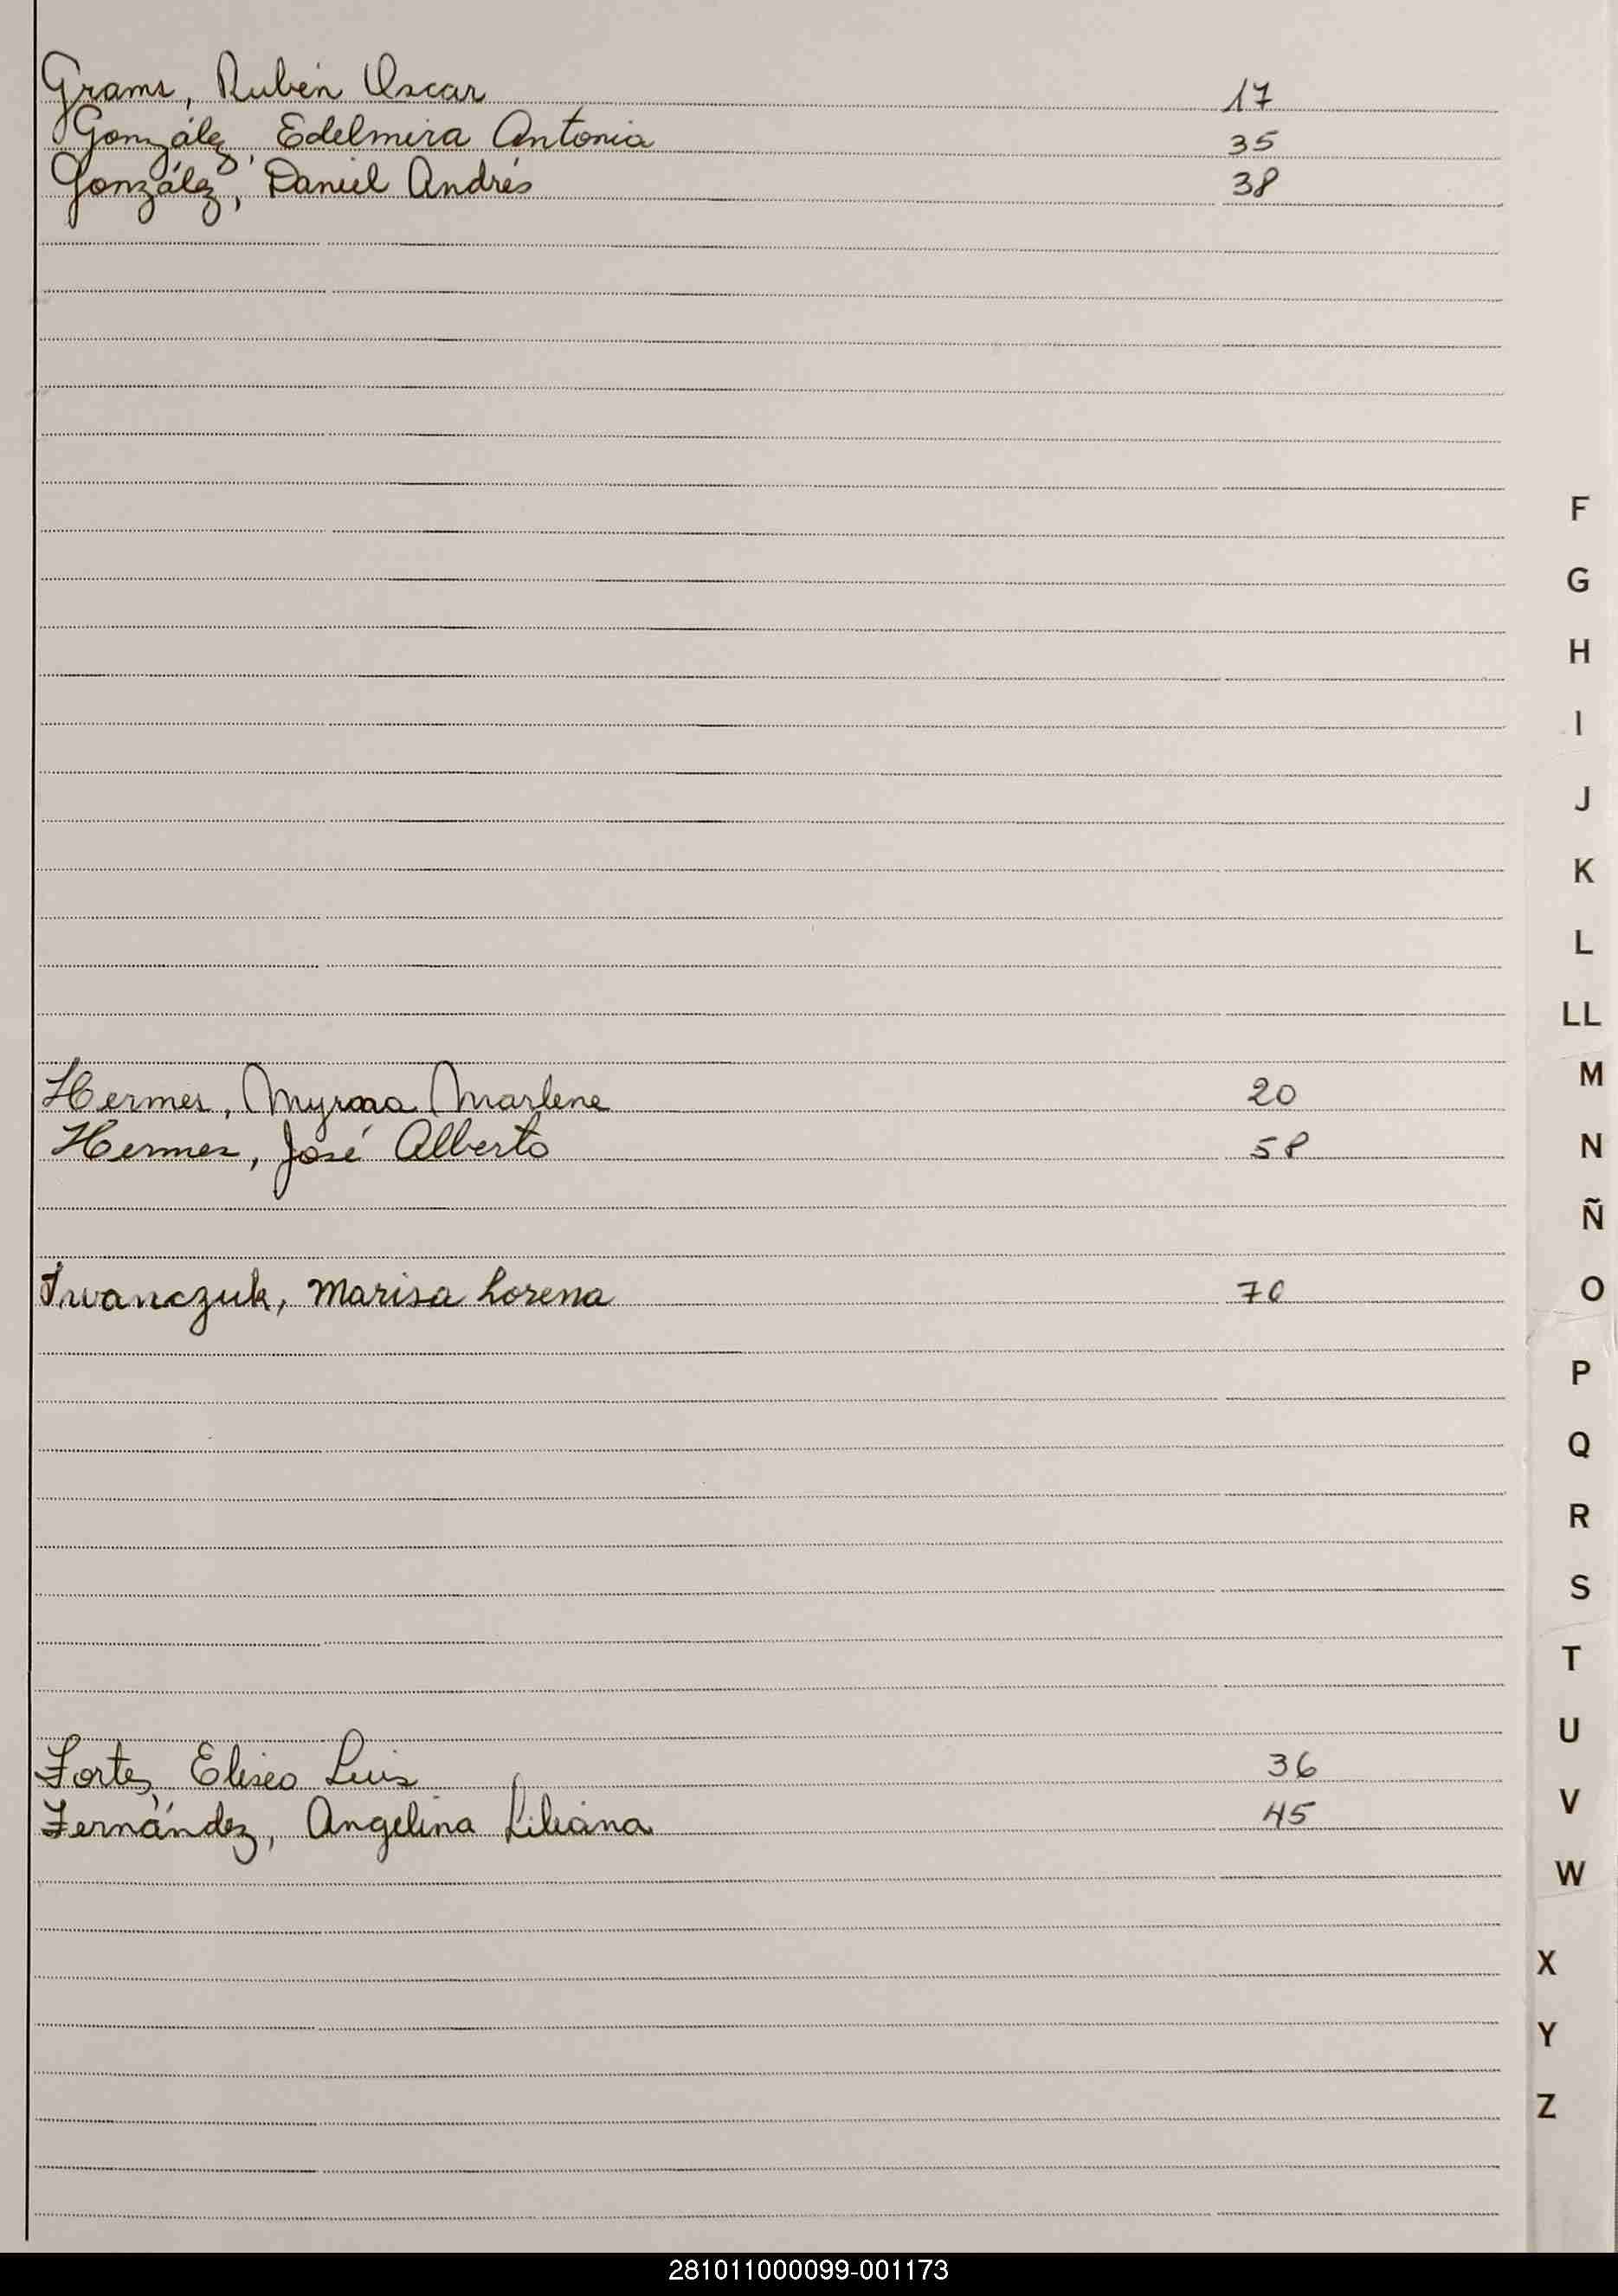 Grams, Rubén Oscar 17
González, Edelmira Antonia 35
González, Daniel Andrés 38
F
G
H
I
J
K
L
LL
Hermes, Myrna Marlene 20
M
Hermes, José Alberto 58
N
Ñ
Iwanczuk, Marisa Lorena 70
O
P
Q
R
S
T
U
Fortes, Eliseo Luis 36
V
Fernández, Angelina Liliana 45
W
X
Y
Z
281011000099-001173